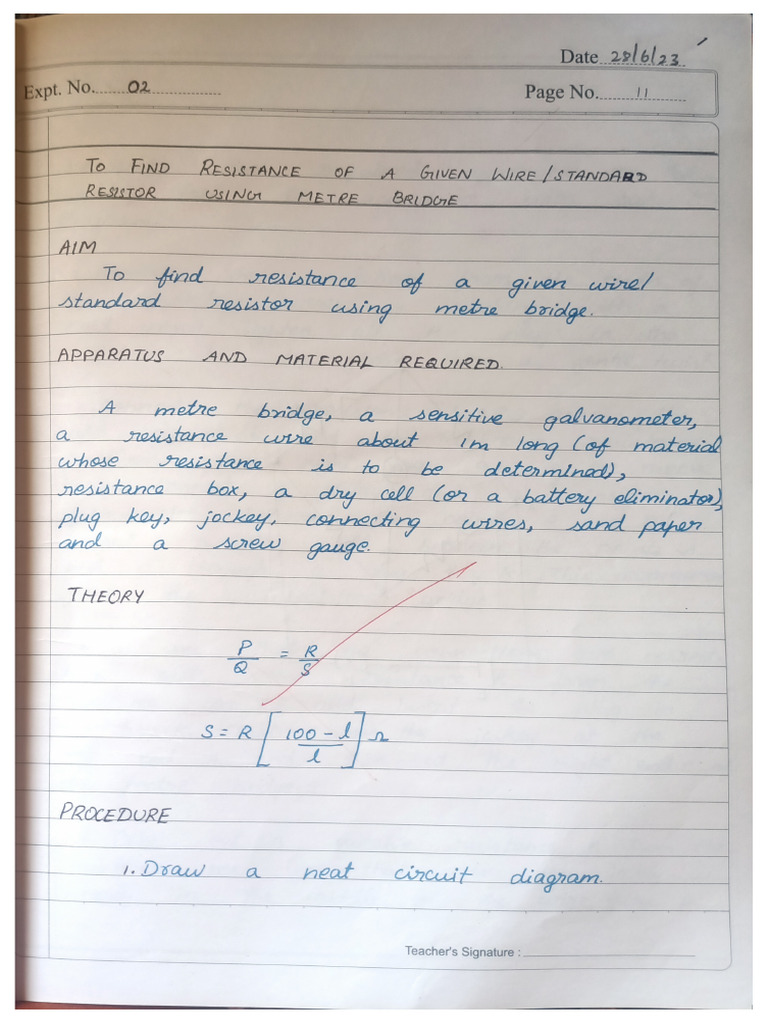 Date 28/6/23
Expt. No. 02
Page No. 11
TO FIND RESISTANCE OF A GIVEN WIRE/STANDARD
RESISTOR USING METRE BRIDGE
AIM
To find resistance of a given wire/
standard resistor using metre bridge.
APPARATUS AND MATERIAL REQUIRED.
A metre bridge, a sensitive galvanometer,
a resistance wire about 1m long (of material
whose resistance is to be determined),
resistance box, a dry cell (or a battery eliminator),
plug key, jockey, connecting wires, sand paper
and a screw gauge.
THEORY
P/Q = R/S
S = R [100 - l / l] Ω
PROCEDURE
1. Draw a neat circuit diagram.
Teacher's Signature :